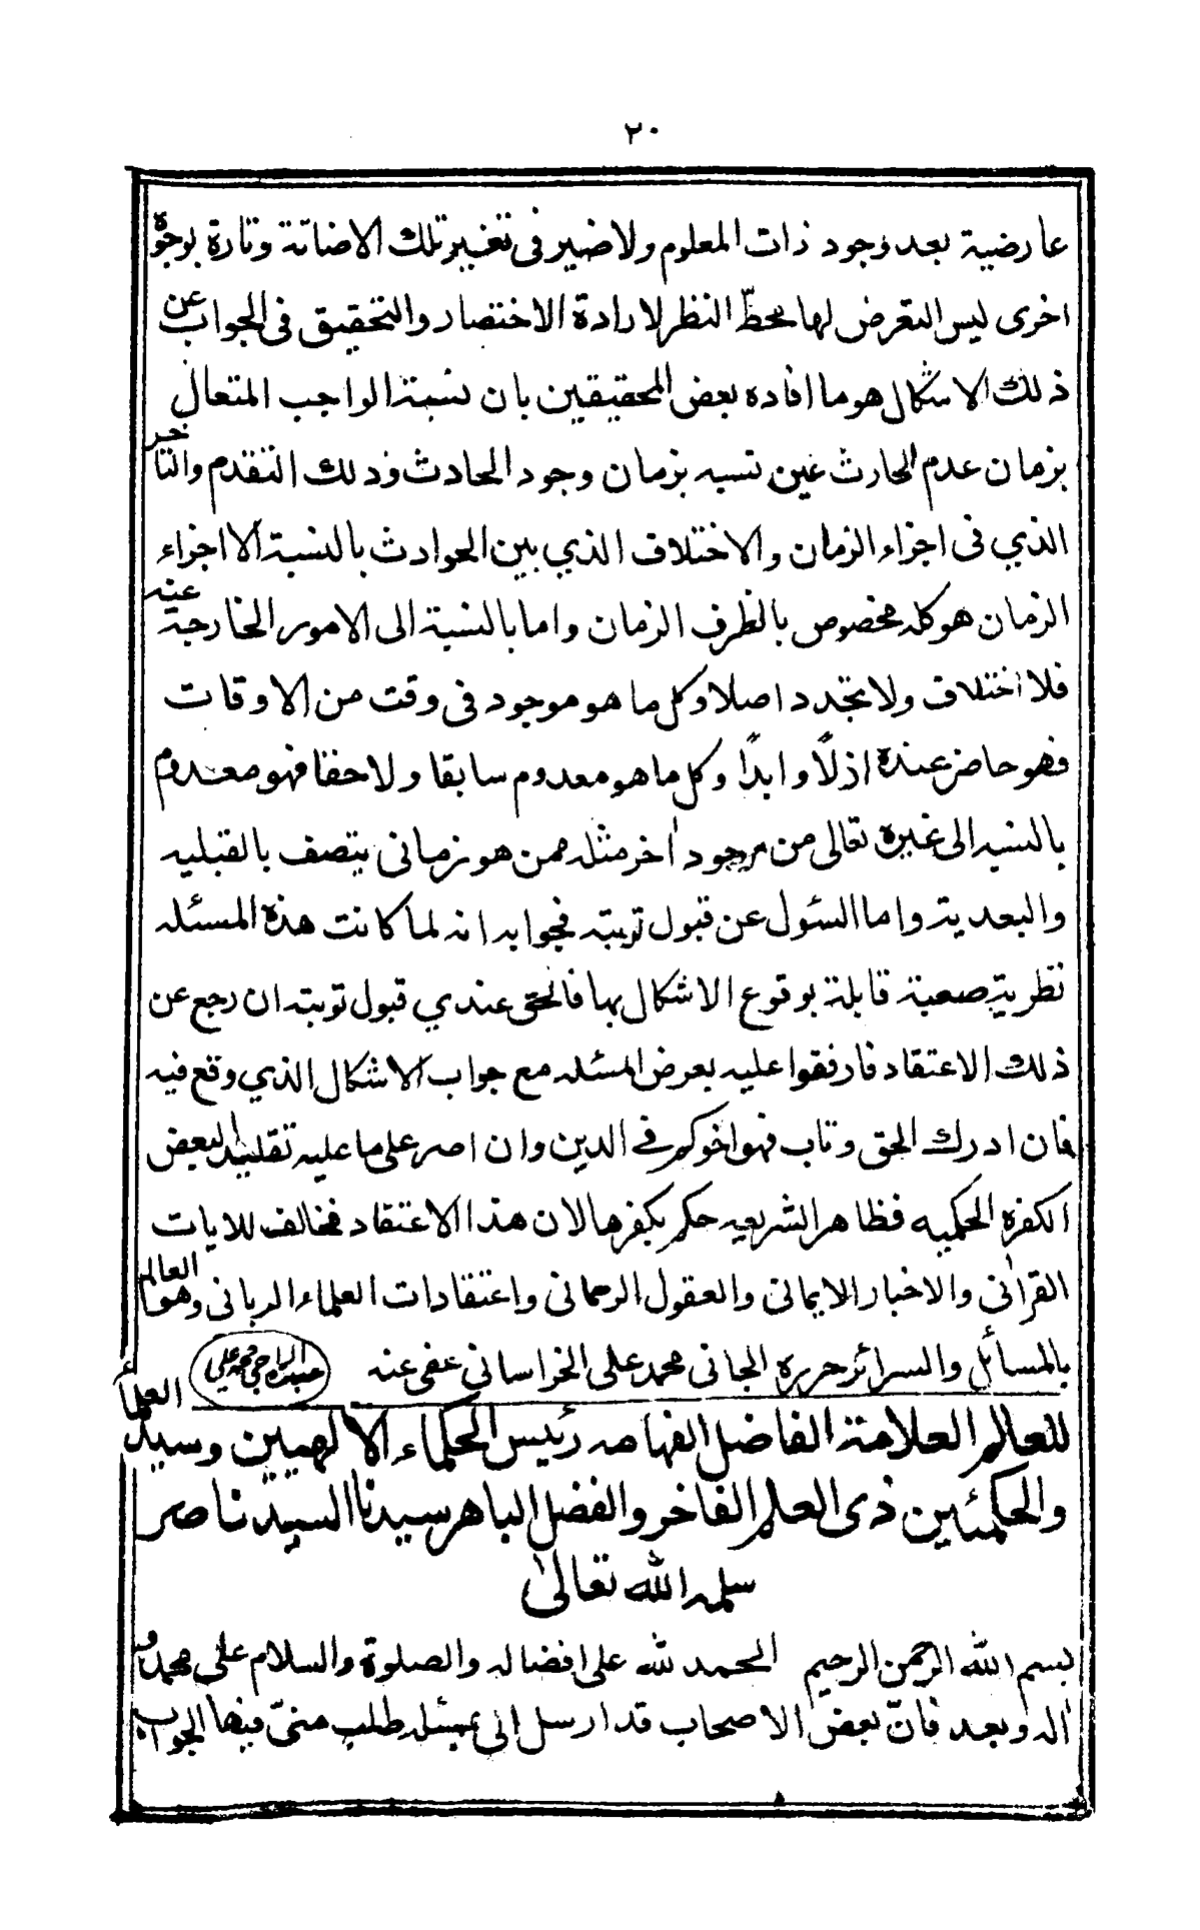 ٢٠
عارضية بعد وجود ذات المعلوم ولا ضير في تغيير تلك الاضافة وتارة بوجوه
اخرى ليس التعرض لها محطّ النظر لارادة الاختصار والتحقيق في الجواب عن
ذلك الاشكال هو ما افاده بعض المحقيقين بان نسبة الواجب المتعال
بزمان عدم الحارث عين نسبه بزمان وجود الحادث وذلك التقدم والتاخر
الذي في اجزاء الزمان والاختلاف الذي بين الحوادث بالنسبة الا اجزاء
الزمان هو كله مخصوص بالظرف الزمان واما بالنسبة الى الامور الخارجة عنه
فلا اختلاف ولا تجدد اصلا وكل ما هو موجود في وقت من الاوقات
فهو حاضر عنده اذلاً وابداً وكل ما هو معدوم سابقا ولاحقا فهو معدوم
بالنسبه الى غيره تعالى من موجود اخر مثله ممن هو زماني يتصف بالقبليه
والبعدية واما السئول عن قبول توبته فجوابه انه لما كانت هذه المسئله
نظرية صعبة قابلة بوقوع الاشكال بها فالحق عندي قبول توبته ان رجع عن
ذلك الاعتقاد فارفقوا عليه بعرض المسئله مع جواب الاشكال الذي وقع فيه
فان ادرك الحق وتاب فهو اخوكم في الدين وان اصر على ما عليه تقليدا لبعض
الكفره الحكميه فظاهر الشريعه حكم بكفرها لان هذا الاعتقاد مخالف للايات
القرانى والاخبار الايمانى والعقول الرحمانى واعتقادات العلماء الربانى وهو العالم
بالمسائل والسرائر حرره الجانى محمد على الخراسانى عفى عنه عبده الراجي محمد علي
للعالم العلامة الفاضل الفهامه رئيس الحكماء الالهيين وسيد العلماء
والحكمئين ذى العلم الفاخر والفضل الباهر سيدنا السيد ناصر
سلمه الله تعالى
بسم الله الرحمن الرحيم الحمد لله على افضاله والصلوة والسلام على محمد و
اله وبعد فانّ بعض الاصحاب قد ارسل الى بمسئله طلب منىّ فيها الجواب